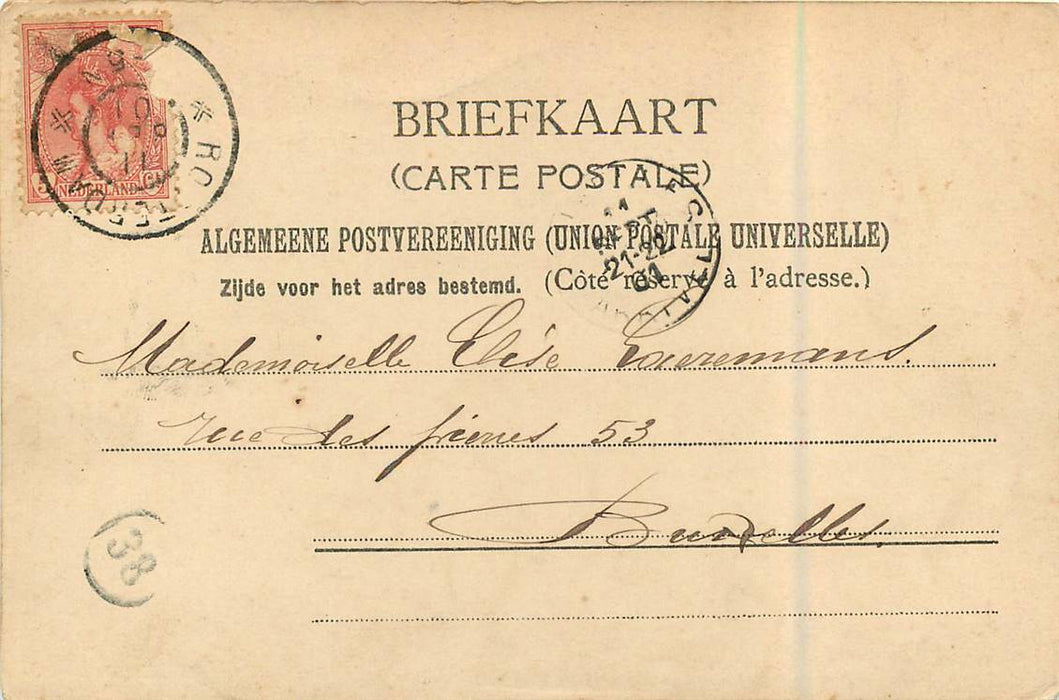 BRIEFKAART
(CARTE POSTALE)
ALGEMEENE POSTVEREENIGING (UNION POSTALE UNIVERSELLE)
Zijde voor het adres bestemd. (Côté réservé à l'adresse.)
NEDERLAND
ROTTERDAM
11
SEPT
21-22
01
Mademoiselle Elise
rue des 53
Bruxelles.
38